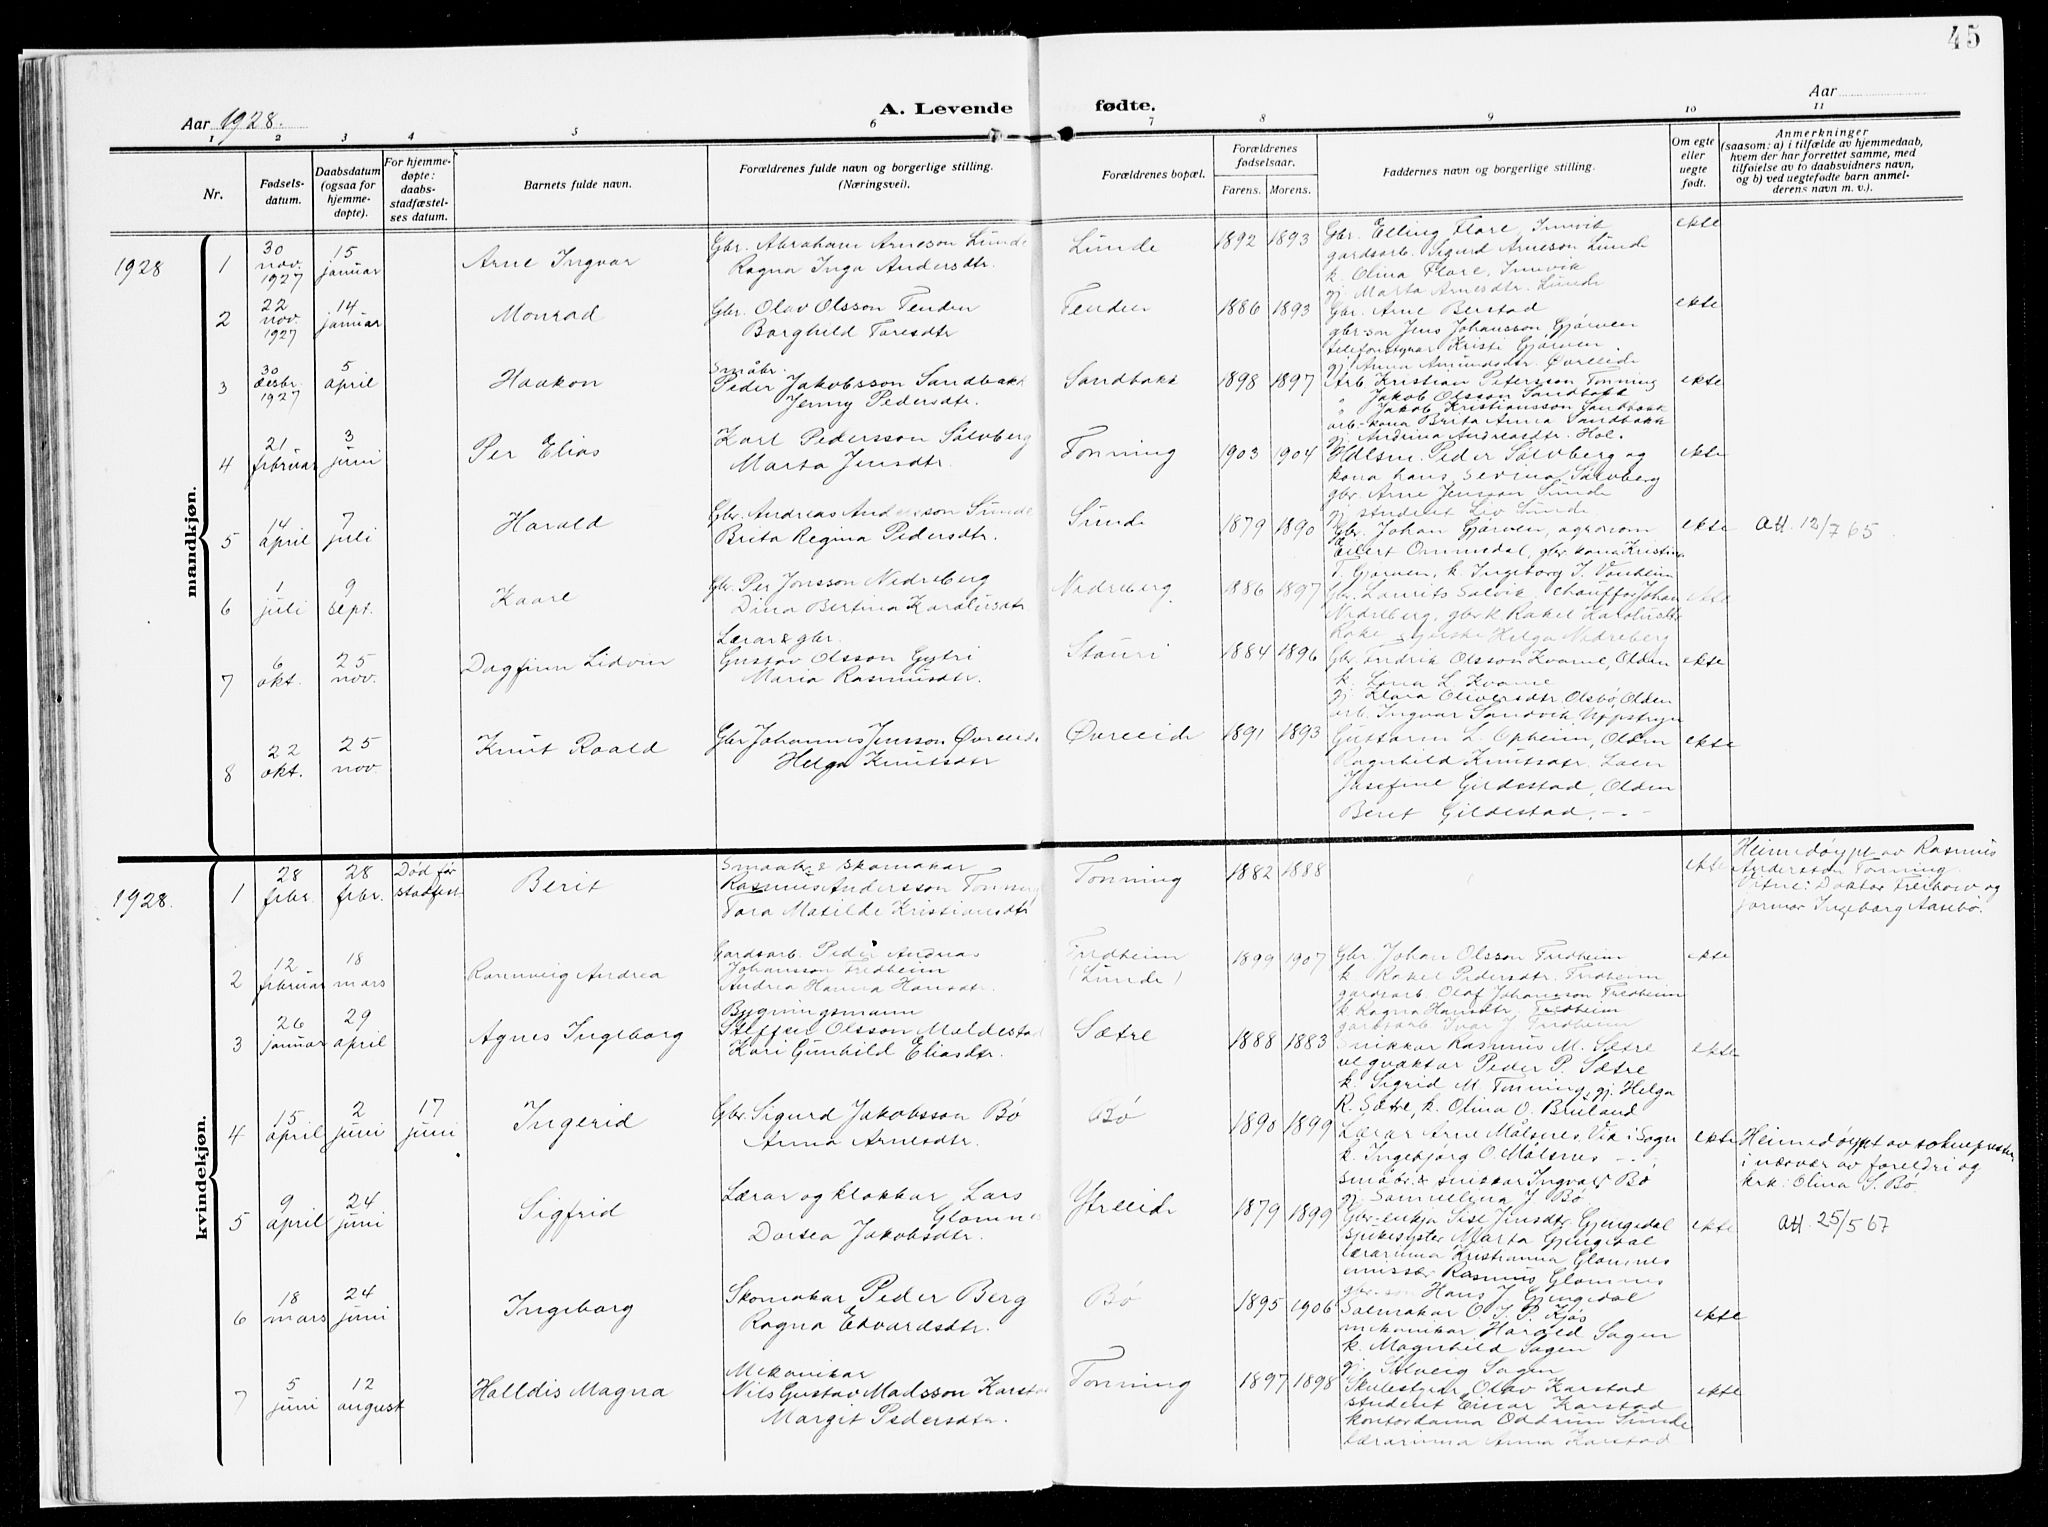 45
Aar 1928.
A. Levende fødte.
Aar
1 2 3 4 5 6 7 8 9 10 11
Nr.
Fødsels-
datum.
Daabsdatum
(ogsaa for
hjemme-
døpte).
For hjemme-
døpte:
daabs-
stadfæstel-
ses datum.
Barnets fulde navn.
Forældrenes fulde navn og borgerlige stilling.
(Næringsvei).
Forældrenes bopæl.
Forældrenes
fødselsaar.
Farens. Morens.
Faddernes navn og borgerlige stilling.
Om egte
eller
uegte
født.
Anmerkninger
(saasom: a) i tilfælde av hjemmedaab,
hvem der har forrettet samme, med
tilføielse av to daabsvidners navn,
og b) ved uegtefødte barn anmel-
derens navn m. v.).
mandkjøn.
1928
1
30
nov.
1927
15
januar
Arne Ingvar
Gbr. Abraham Arneson Lunde
Ragna Inga Andersdtr.
Lunde
1892 1893
Gbr. Elling Flore, Innvik
gardsarb. Sigurd Arneson Lunde
k. Olina Flore, Innvik
gj. Marta Arnesdtr. Lunde
ekte
2
22
nov.
1927
14
januar
Monrad
Gbr. Olav Olsson Tenden
Borghild Taresdtr
Tenden
1886 1893
Gbr. Arne Berstad
gbr-son Jens Johansson Gjørven
telefonstyrar Kristi Gjørven
gj. Anna Amundsdtr. Øvreeide
ekte
3
30
desbr.
1927
5
april
Haakon
Småbr.
Peder Jakobsson Sandbakk
Jenny Pedersdtr.
Sandbakk
1898 1897
Arb. Kristian Petersson Tonning
" Jakob Olsson Sandbakk
" Jakob Kristiansson Sandbakk
arb-kona Brita Anna Sandbakk
gj. Andrina Andreasdtr. Hol.
ekte
4
21
februar
3
juni
Per Elias
Karl Pedersson Sølvberg
Marta Jensdtr.
Tonning
1903 1904
Hdlsm. Peder Sølvberg og
kona hans Sevrina Sølvberg
gbr. Arne Jensson Sunde
gj. student Liv Sunde.
ekte
5
14
april
7
juli
Harald
Gbr. Andreas Andersson Sunde
Brita Regina Pedersdtr.
Sunde
1879 1890
Gbr. Johan Gjørven, agronom
Eilert Ommedal, gbr. kona Kristine
T. Gjørven, k. Ingeborg J. Vonheim
ekte
att. 12/7 65
6
1
juli
9
sept.
Kaare
Gbr. Per Jonsson Nedreberg
Dina Bertina Karolusdtr
Nedreberg
1886 1897
Gbr. Laurits Solvik, chauffør Johan
Nedreberg, gbr.k. Rakel Karolusdtr
Rake, gjente Helga Nedreberg
ekte
7
6
okt.
25
nov.
Dagfinn Lidvin
Lærar & gbr.
Gustav Olsson Gytri
Maria Rasmusdtr.
Stauri
1884 1896
Gbr. Fredrik Olsson Kvame, Olden
k. Lena L. Kvame
gj. Klara Oliversdtr Olsbø, Olden
arb. Ingvar Sandvik, Uppstryn
ekte
8
22
okt.
25
nov.
Knut Roald
Gbr Johannes Jensson Øvreeide
Helga Knutsdtr
Øvreeide
1891 1893
Guttorm L. Opheim, Olden
Ragnhild Knutsdtr. Loen
Josefine Gildestad, Olden
Beret Gildestad, -"-
ekte
kvindekjøn.
1928.
1
28
febr.
28
febr.
Død før
stadfest.
Berit
Smaabr. & skomakar
Rasmus Andersson Tonning
Tora Matilde Kristiansdtr
Tonning
1882 1888
ekte
Heimedøypt av Rasmus
Andersson Tonning.
Vitne: Doktor Freihow og
jormor Ingeborg Aasebø.
2
12
februar
18
mars
Rannveig Andrea
Gardsarb. Peder Andreas
Johansson Fredheim
Andrea Hanna Hansdtr.
Fredheim
(Lunde)
1899 1907
Gbr. Johan Olsson Fredheim
k. Rakel Pedersdtr. Fredheim
gardsarb. Olaf Johansson Fredheim
k. Ragna Hansdtr. Fredheim
gardsarb. Ivar J. Fredheim
ekte
3
26
januar
29
april
Agnes Ingeborg
Bygningsmann
Steffen Olsson Meldestad
Kari Gunhild Eliasdtr.
Sætre
1888 1883
Snikkar Rasmus M. Sætre
vegvaktar Peder P. Sætre
k. Sigrid M. Tonning, gj. Helga
R. Sætre, k. Olina O. Bruland
ekte
4
15
april
2
juni
17
juni
Ingerid
Gbr. Sigurd Jakobsson Bø
Anna Arnesdtr.
Bø
1890 1899
Lærar Arne Målsnes, Vik i Sogn
k. Ingebjørg O. Målsnes -"-
Småbr. & snikkar Ingvald Bø
gj. Samueline J. Bø
ekte
Heimedøypt av soknepresten
i nærvær av foreldri og
frk. Olina S. Bø.
5
9
april
24
juni
Sigfrid
Lærar og klokkar Lars
Glomnes
Dortea Jakobsdtr.
Ytreeide
1879 1899
Gbr-enkja Sise Jensdtr. Gjengedal
Sjukesyster Marta Gjengedal
lærarinna Kristianna Glomnes
emissær Rasmus Glomnes
gbr.-son Hans J. Gjengedal
ekte
att. 25/5 67
6
18
mars
24
juni
Ingeborg
Skomakar Peder Berg
Ragna Edvardsdtr.
Bø
1895 1906
Salmakar O. J. P. Kjøs
mekanikar Harald Sagen
k. Magnhild Sagen
gj. Solveig Sagen
ekte
7
5
juni
12
august
Halldis Magna
Mekanikar
Nils Gustav Madsson Karstad
Margit Pedersdtr.
Tonning
1897 1898
Skulestyrar Olav Karstad
student Einar Karstad
kontordama Oddrun Sunde
lærarinna Anna Karstad
ekte